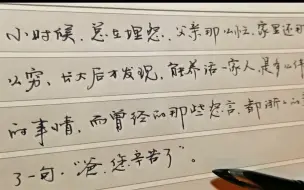 小时候，总在埋怨，父亲那么忙，家里还可
以穷，长大后才发现，能养活一家人，是多么伟
的事情，而曾经的那些怨言，都渐
了一句，“爸，您辛苦了”。